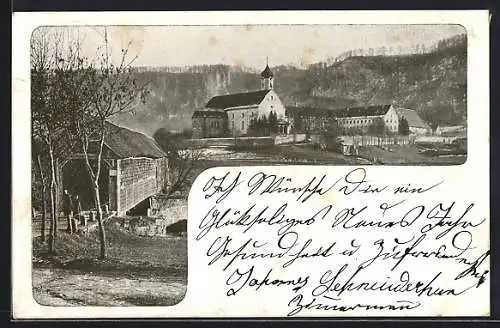 Ich Wünsche Dir ein
Glückseliges Neues Jahr
Gesundheit u Zufriedenheit
Johannes Schneiderhan
Zimmerman